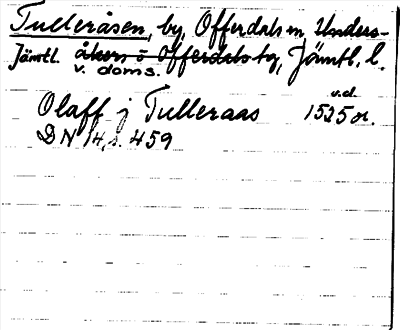 Tulleråsen, by, Offerdals sn, Unders-
Jämtl. åkers o Offerdals tg, Jämtl. l.
v. doms.
v.d.
Olaff j Tulleraas 1525 or.
DN 14, s. 459